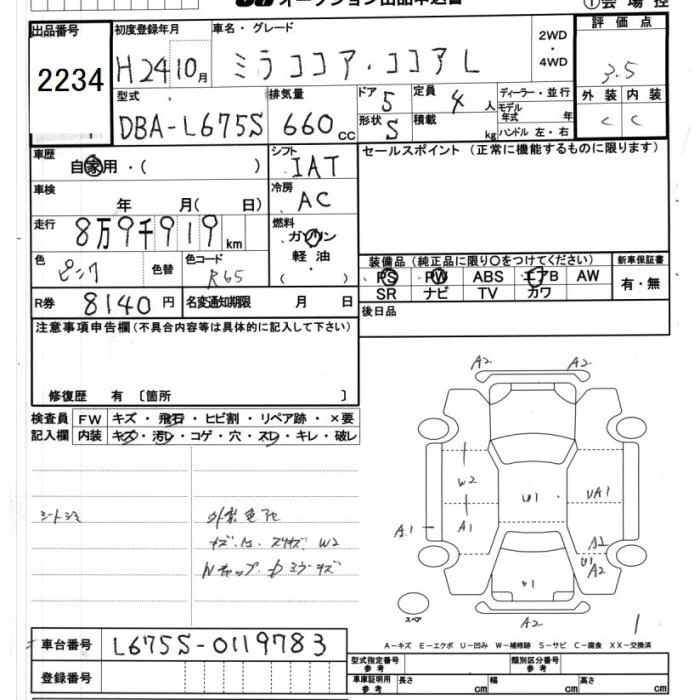 オークション出品申込書
①会場控
出品番号
2234
初度登録年月
H24 10月
車名・グレード
ミラココア・ココアL
2WD
・
4WD
評価点
3.5
外装 内装
C C
型式
DBA-L675S
排気量
660cc
ドア 5
定員 4人
形状 S
積載 kg
ディーラー・並行
モデル年式 年
ハンドル 左・右
車歴
自家用・( )
シフト
IAT
セールスポイント (正常に機能するものに限ります)
車検
年 月( 日)
冷房
AC
走行
8万9千919km
燃料
ガソリン
軽油
・
( )
色
ピンク
色替
色コード
R65
装備品 (純正品に限り○をつけてください)
新車保証書
PS PW ABS エアB AW
有・無
SR ナビ TV カワ
R券
8140円
名変通知期限 月 日
後日品
注意事項申告欄(不具合内容等は具体的に記入して下さい)
修復歴 有 〔箇所 〕
検査員
記入欄
FW キズ・飛石・ヒビ割・リペア跡・×要
内装 キズ・汚レ・コゲ・穴・スレ・キレ・破レ
外装色アセ
W2
A2 A2
W2
A1
A1
U1
UA1
A2
U1 A2
A2
スペア
1
車台番号
L675S-0119783
登録番号
A-キズ E-エクボ U-凹み W-補修跡 S-サビ C-腐食 XX-交換済
型式指定番号
参考
類別区分番号
参考
車庫証明用
参考
長さ cm
幅 cm
高さ cm